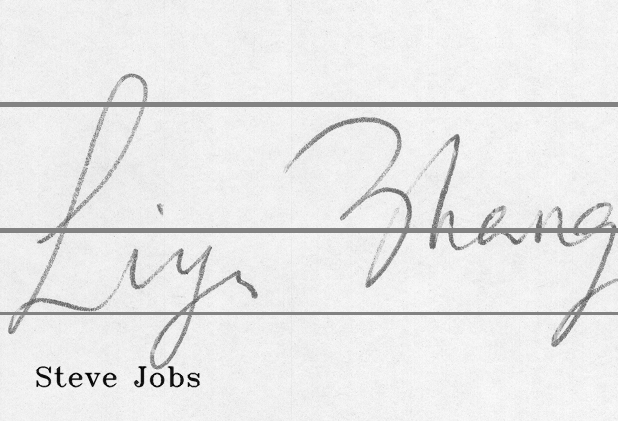 Liya Zhang
Steve Jobs